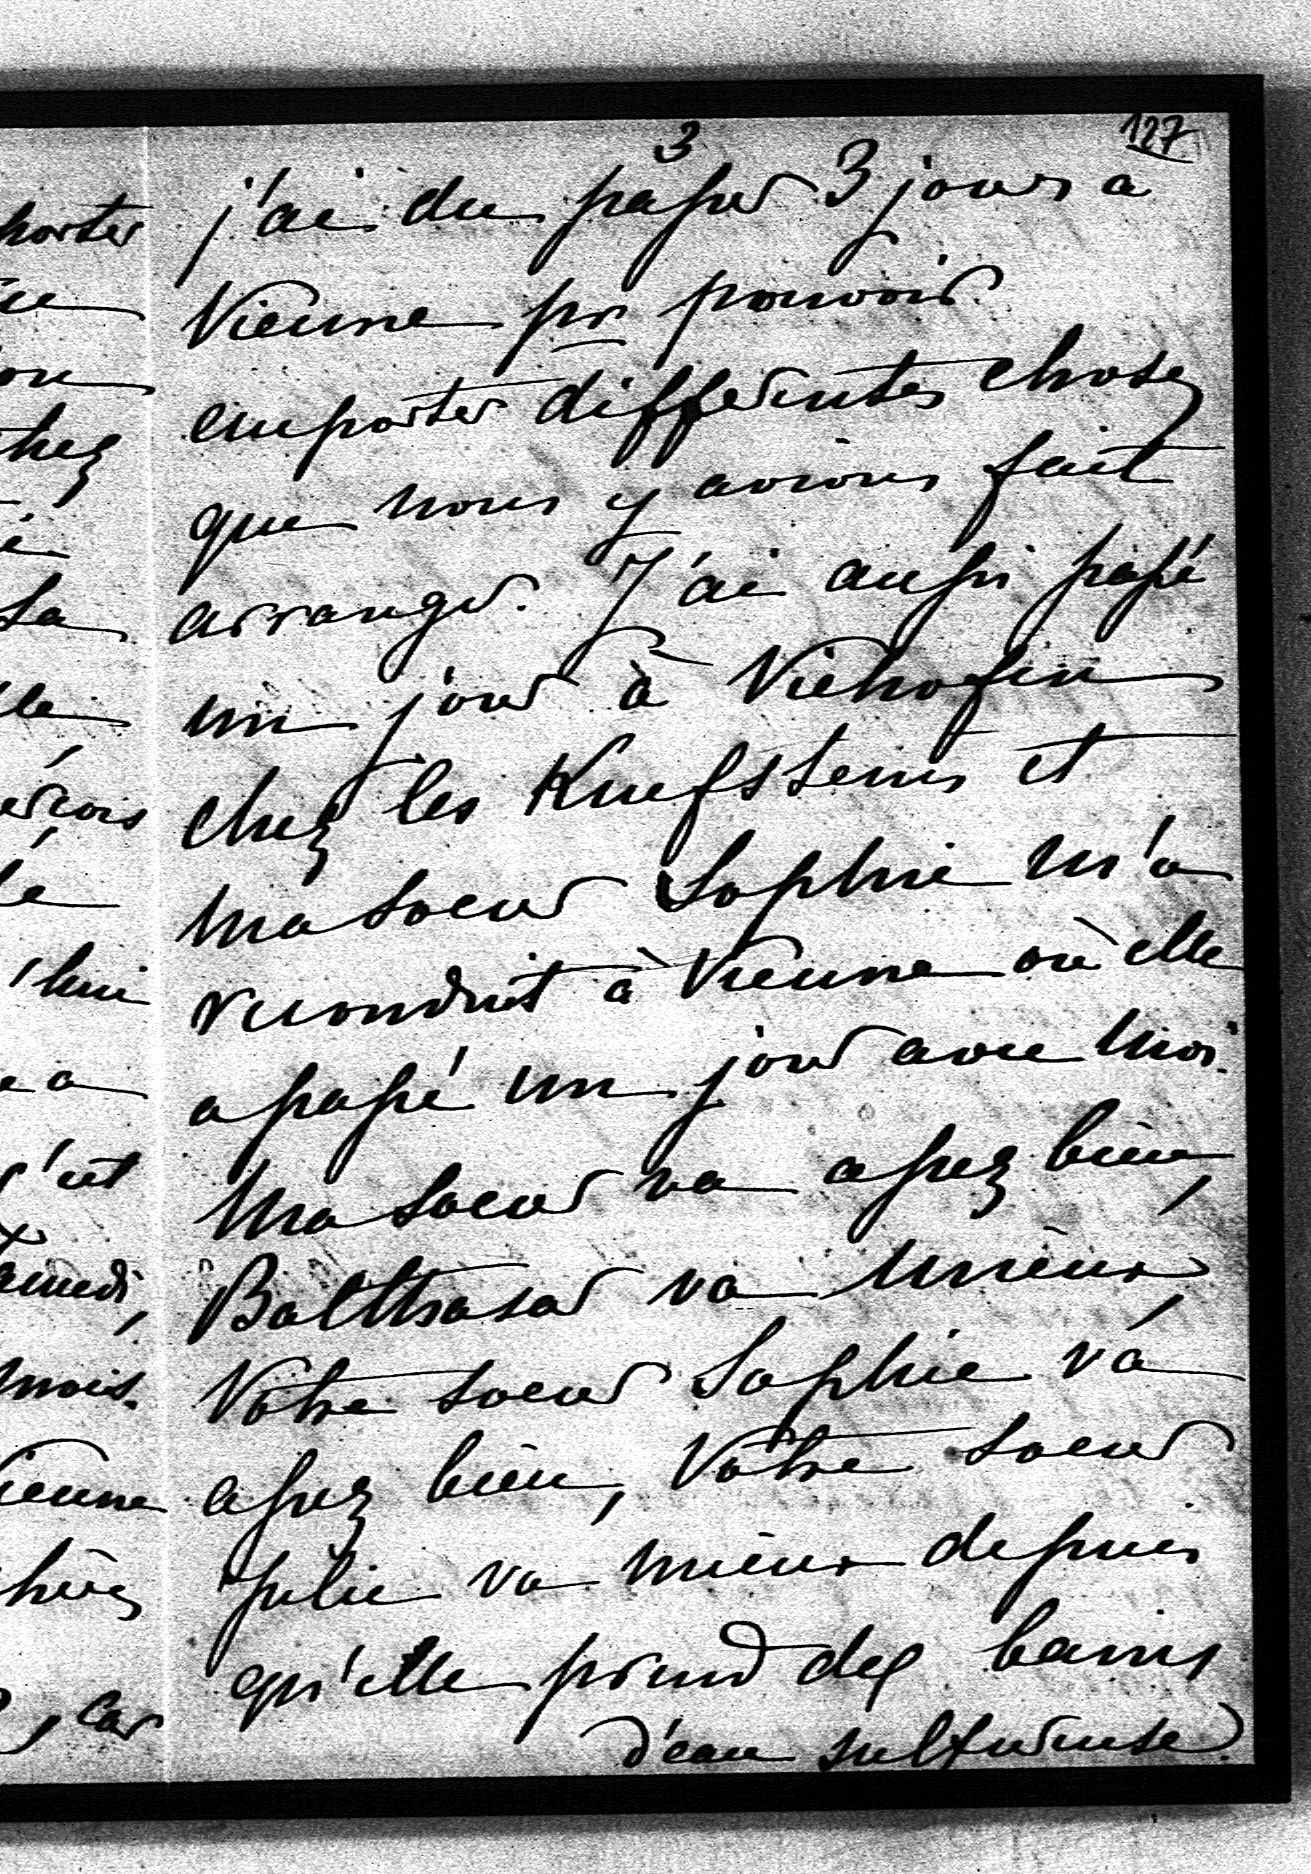 3
127
j'ai du passer 3 jours a
Vienne pr pouvoir
emporter differentes choses
que nous y avions fait
arranger. J'ai aussi passé
un jour à Viehofen
chez les Kuefsteins et
ma soeur Sophie m'a
reconduit à Vienne où elle
a passé un jour avec moi.
Ma soeur va assez bien,
Balthasar va mieux,
Votre soeur Sophie va
assez bien, Votre soeur
Julie va mieux depuis
qu'elle prend des bains
d'eau sulfureuse.
porter
chez
la
'hui
a
amedi,
mois.
ienne
, car